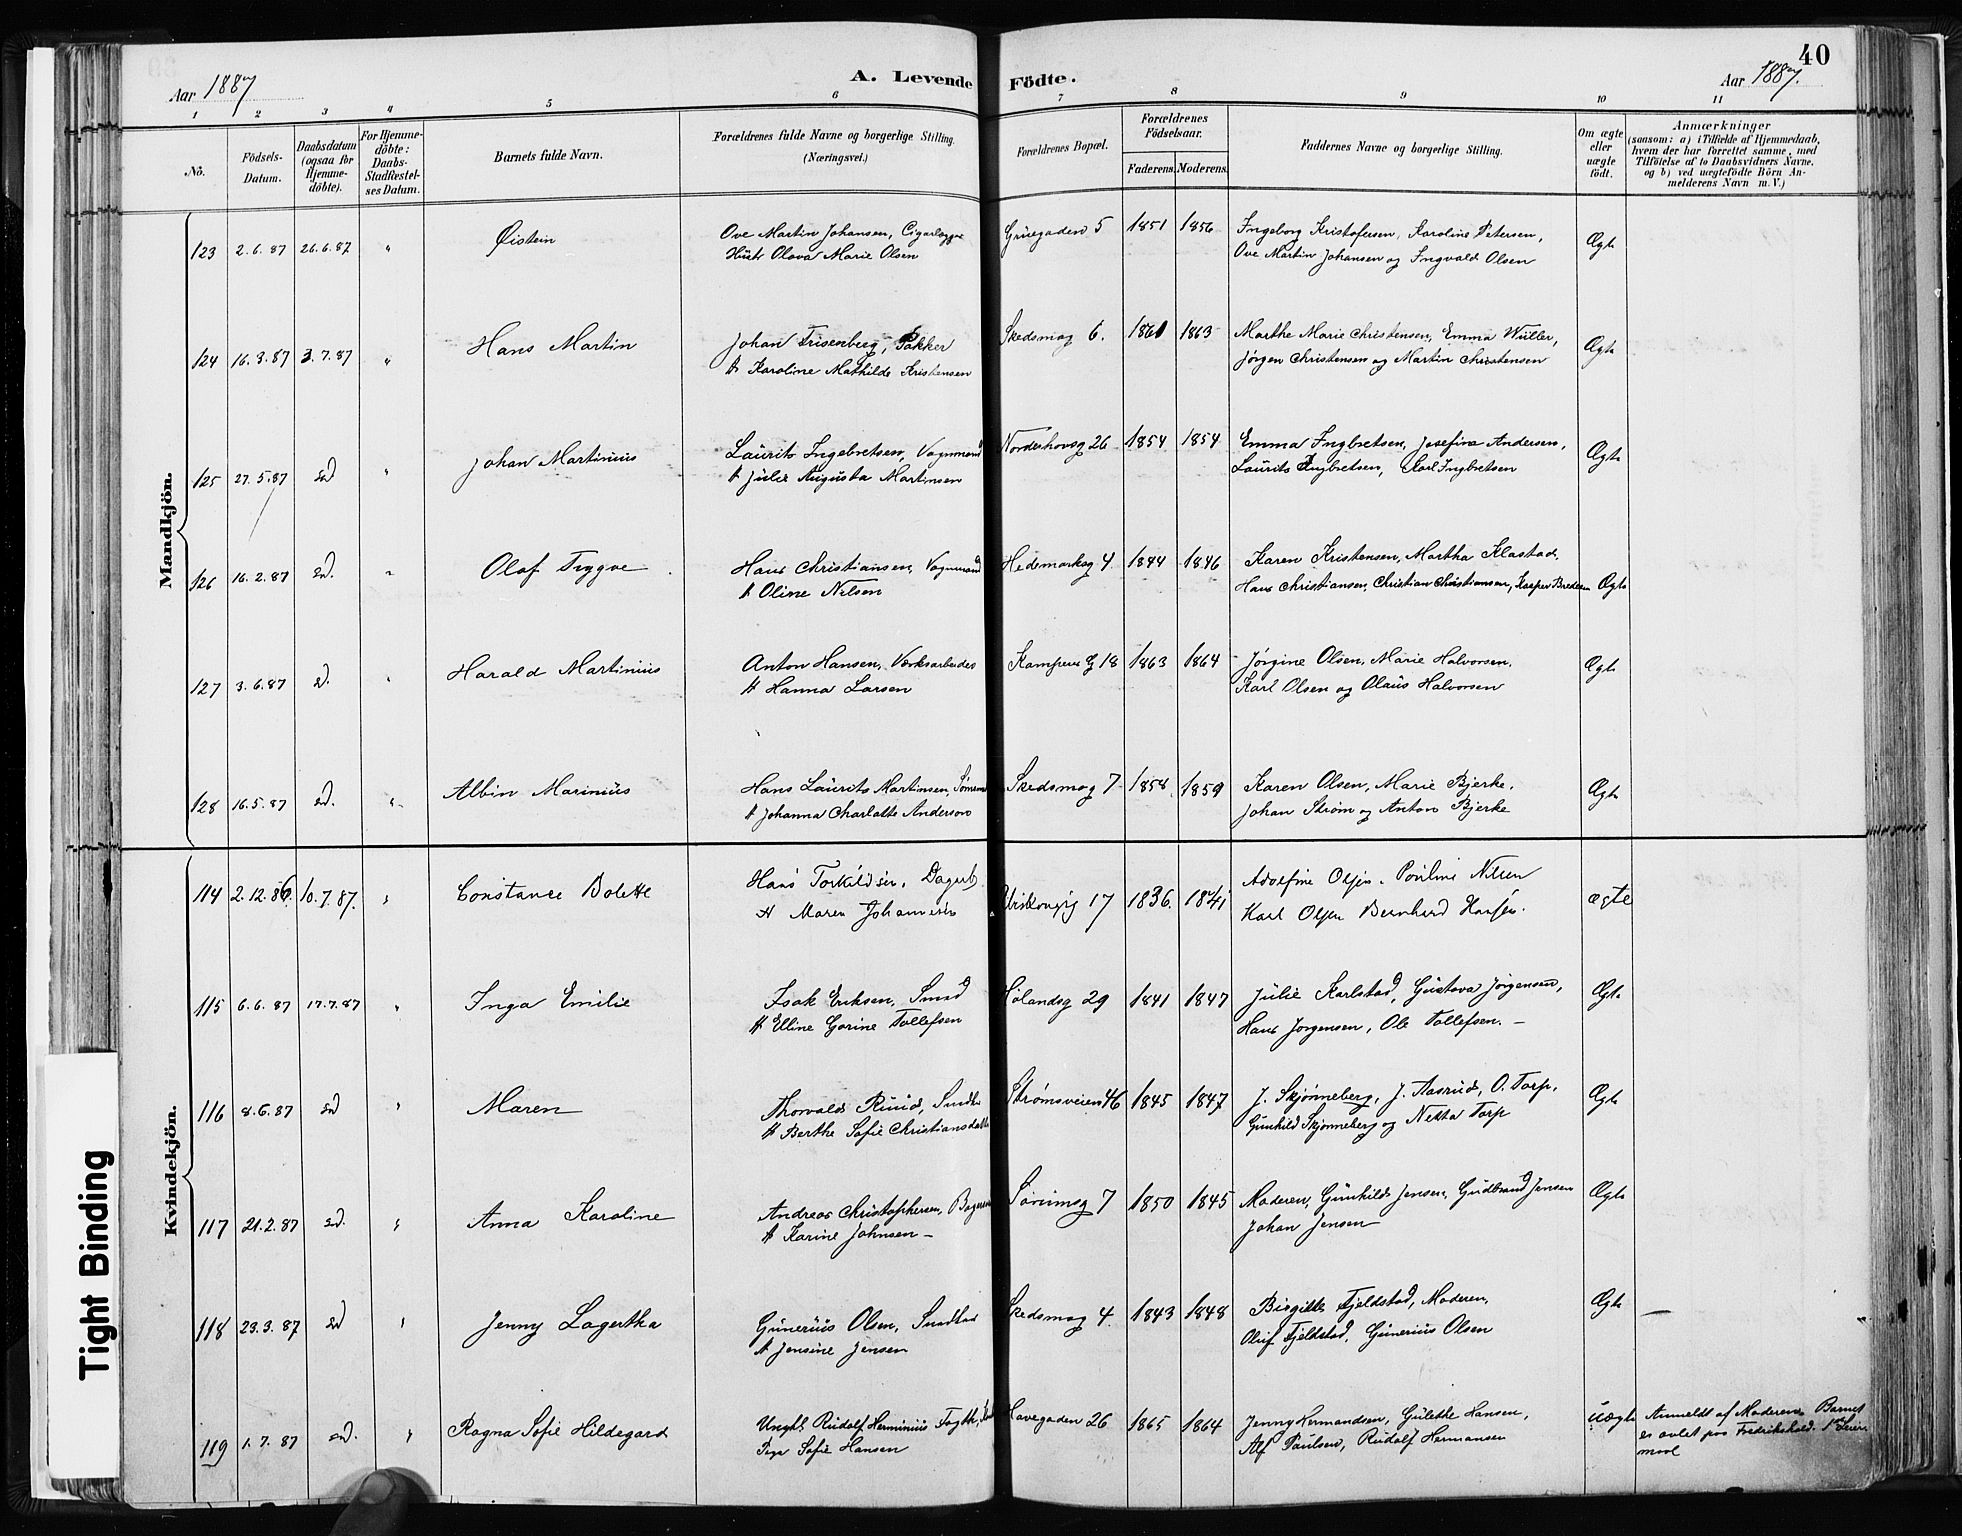 40
Aar 1887
A. Levende Födte.
Aar 1887.
1 2 3 4 5 6 7 8 9 10 11
No.
Födsels-Datum.
Daabsdatum (ogsaa for Hjemme-döbte).
For Hjemme-döbte: Daabs-Stadfæstel-ses Datum.
Barnets fulde Navn.
Forældrenes fulde Navne og borgerlige Stilling. (Næringsvei.)
Forældrenes Bopæl.
Forældrenes Födselsaar.
Faderens. Moderens.
Faddernes Navne og borgerlige Stilling.
Om ægte eller uægte födt.
Anmærkninger
(saasom: a) i Tilfælde af Hjemmedaab,
hvem der har forrettet samme, med
Tilföielse af to Daabsvidners Navne,
og b) ved uægtefödte Börn An-
melderens Navn m. V.)
Mandkjön.
123 2.6.87 26.6.87 " Øistein Ove Martin Johansen, Grüegaden 5 1851 1856 Ingeborg Kristofersen, Karoline Petersen, Ægte
Hustr Olava Marie Olsen Ove Martin Johansen og Ingvald Olsen
124 16.3.87 3.7.87 " Hans Martin Johan Frisenberg, Pakker Skedsmog 6. 1861 1863 Marthe Marie Christensen, Emma Wüller, Ægte
H Karoline Mathilde Kristensen Jørgen Christensen og Martin Christensen
125 27.5.87 sd " Johan Martinius Laurits Ingebretsen, Vognmand Norderhovsg 26 1854 1854 Emma Ingbretsen, Josefine Andersen, Ægte
H Julie Augusta Martinsen Laurits Ingbretsen, Karl Ingbretsen
126 16.2.87 sd. " Olaf Trygve Hans Christiansen, Vognmand Hedemarksg 4 1844 1846 Karen Kristensen, Martha Klastad,
H Oline Nilsen Hans Christiansen, Christian Christiansen, Kasper Ægte
127 3.6.87 sd. " Harald Martinius Anton Hansen, Værksarbeider Kampens G 18 1863 1864 Jørgine Olsen, Marie Halvorsen, Ægte
H Hanna Larsen Karl Olsen og Olaus Halvorsen
128 16.5.87 sd. " Albin Marinius Hans Laurits Martinsen, Skedsmog 7 1854 1859 Karen Olsen, Marie Bjerke, Ægte
H Johanna Charlotte Anderson Johan Strøm og Anton Bjerke
Kvindekjön.
114 2.12.86. 10.7.87. " Constance Bolette Hans Torkildsen, Dagarb. 17 1836. 1841 Adolfine Olsen, Pouline Nilsen ægte
H Maren Johannesen Karl Olsen Bernhard Hansen.
115 6.6.87 17.7.87 " Inga Emilie Isak Eriksen, Smed Hølandsg 29 1841 1847 Julie Karlstad, Gustava Jørgensen, Ægte
H Elline Gorine Tollefsen Hans Jørgensen, Ole Tollefsen. –
116 8.6.87 sd " Maren Thorvald Ruud, Snedker Strømsveien 46 1845 1847 J. Skjønneberg, J. Aasrud, O. Torp, Ægte
H Berthe Sofie Christiansdatter Gunhild Skjønneberg og Netta Torp
117 21.2.87 sd. " Anna Karoline Andreas Christophersen, Sørumsg 7 1850 1845 Moderen, Gunhild Jensen, Gudbrand Jensen Ægte
H Karine Johnsen – Johan Jensen
118 23.3.87 sd " Jenny Lagertha Gunerius Olsen, Skedsmog 4. 1843 1848 Birgitte Fjeldstad, Moderen, Ægte –
H Jensine Jensen Oluf Fjeldstad, Gunerius Olsen
119 1.7.87 sd. " Ragna Sofie Hildegard Ungkl Rudolf Herminius Havegaden 26 1865 1864 Jenny Hermandsen, Gulette Hansen, Uægte Anmeldt af Moderen. Barnet
Pige Sofie Hansen Alf Paulsen, Rudolf Hermansen er avlet paa Fredrikshald. 1ste Leier
maal
Tight Binding